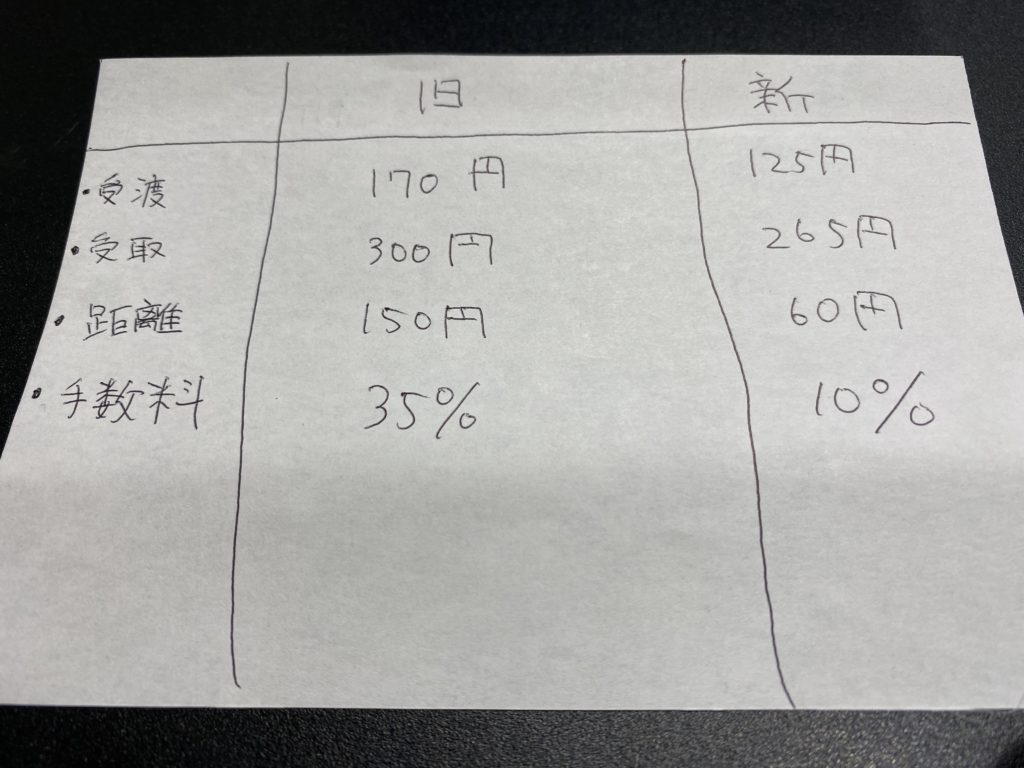 旧 新
・受渡 170円 125円
・受取 300円 265円
・距離 150円 60円
・手数料 35% 10%